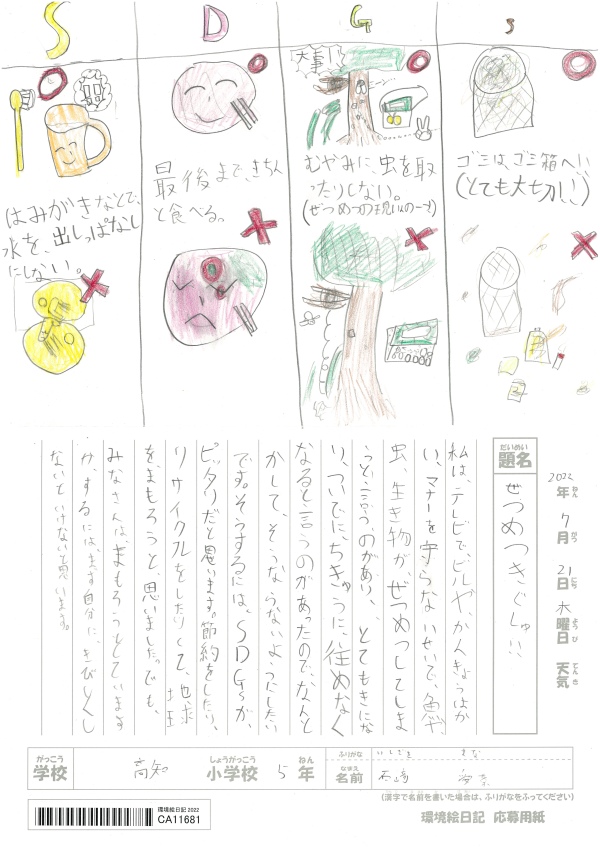 S D G s
はみがきなどで、
水を、出しっぱなし
にしない。
最後まで、きちん
と食べる。
大事!!
むやみに、虫を取
ったりしない。
(ぜつめつの現いの一つ)
ゴミは、ゴミ箱へ!!
(とても大切!!)
2022年ねん 7月がつ 21日にち 木曜日ようび 天気てんき
題名だいめい ぜつめつきぐしゅ!!
私は、テレビで、ビルや、かんきょうはか
い、マナーを守らないせいで、魚や、
虫、生き物が、ぜつめつしてしま
うと、言うのがあり、とてもきにな
り、ついでに、ちきゅうに、住めなく
なると言うのがあったので、なんと
かして、そうならないようにしたい
です。そうするには、SDGsが、
ピッタリだと思います。節約をしたり、
リサイクルをしたりして、地球
をまもろうと、思いました。でも、
みなさんは、まもろうとしています
が、するには、まず自分に、きびしくし
ないといけないと思います。
がっこう しょうがっこう ねん ふりがな
学校 高知 小学校 5年 なまえ 名前
(漢字で名前を書いた場合は、ふりがなをふってください)
環境絵日記 2022
CA11681
環境絵日記 応募用紙